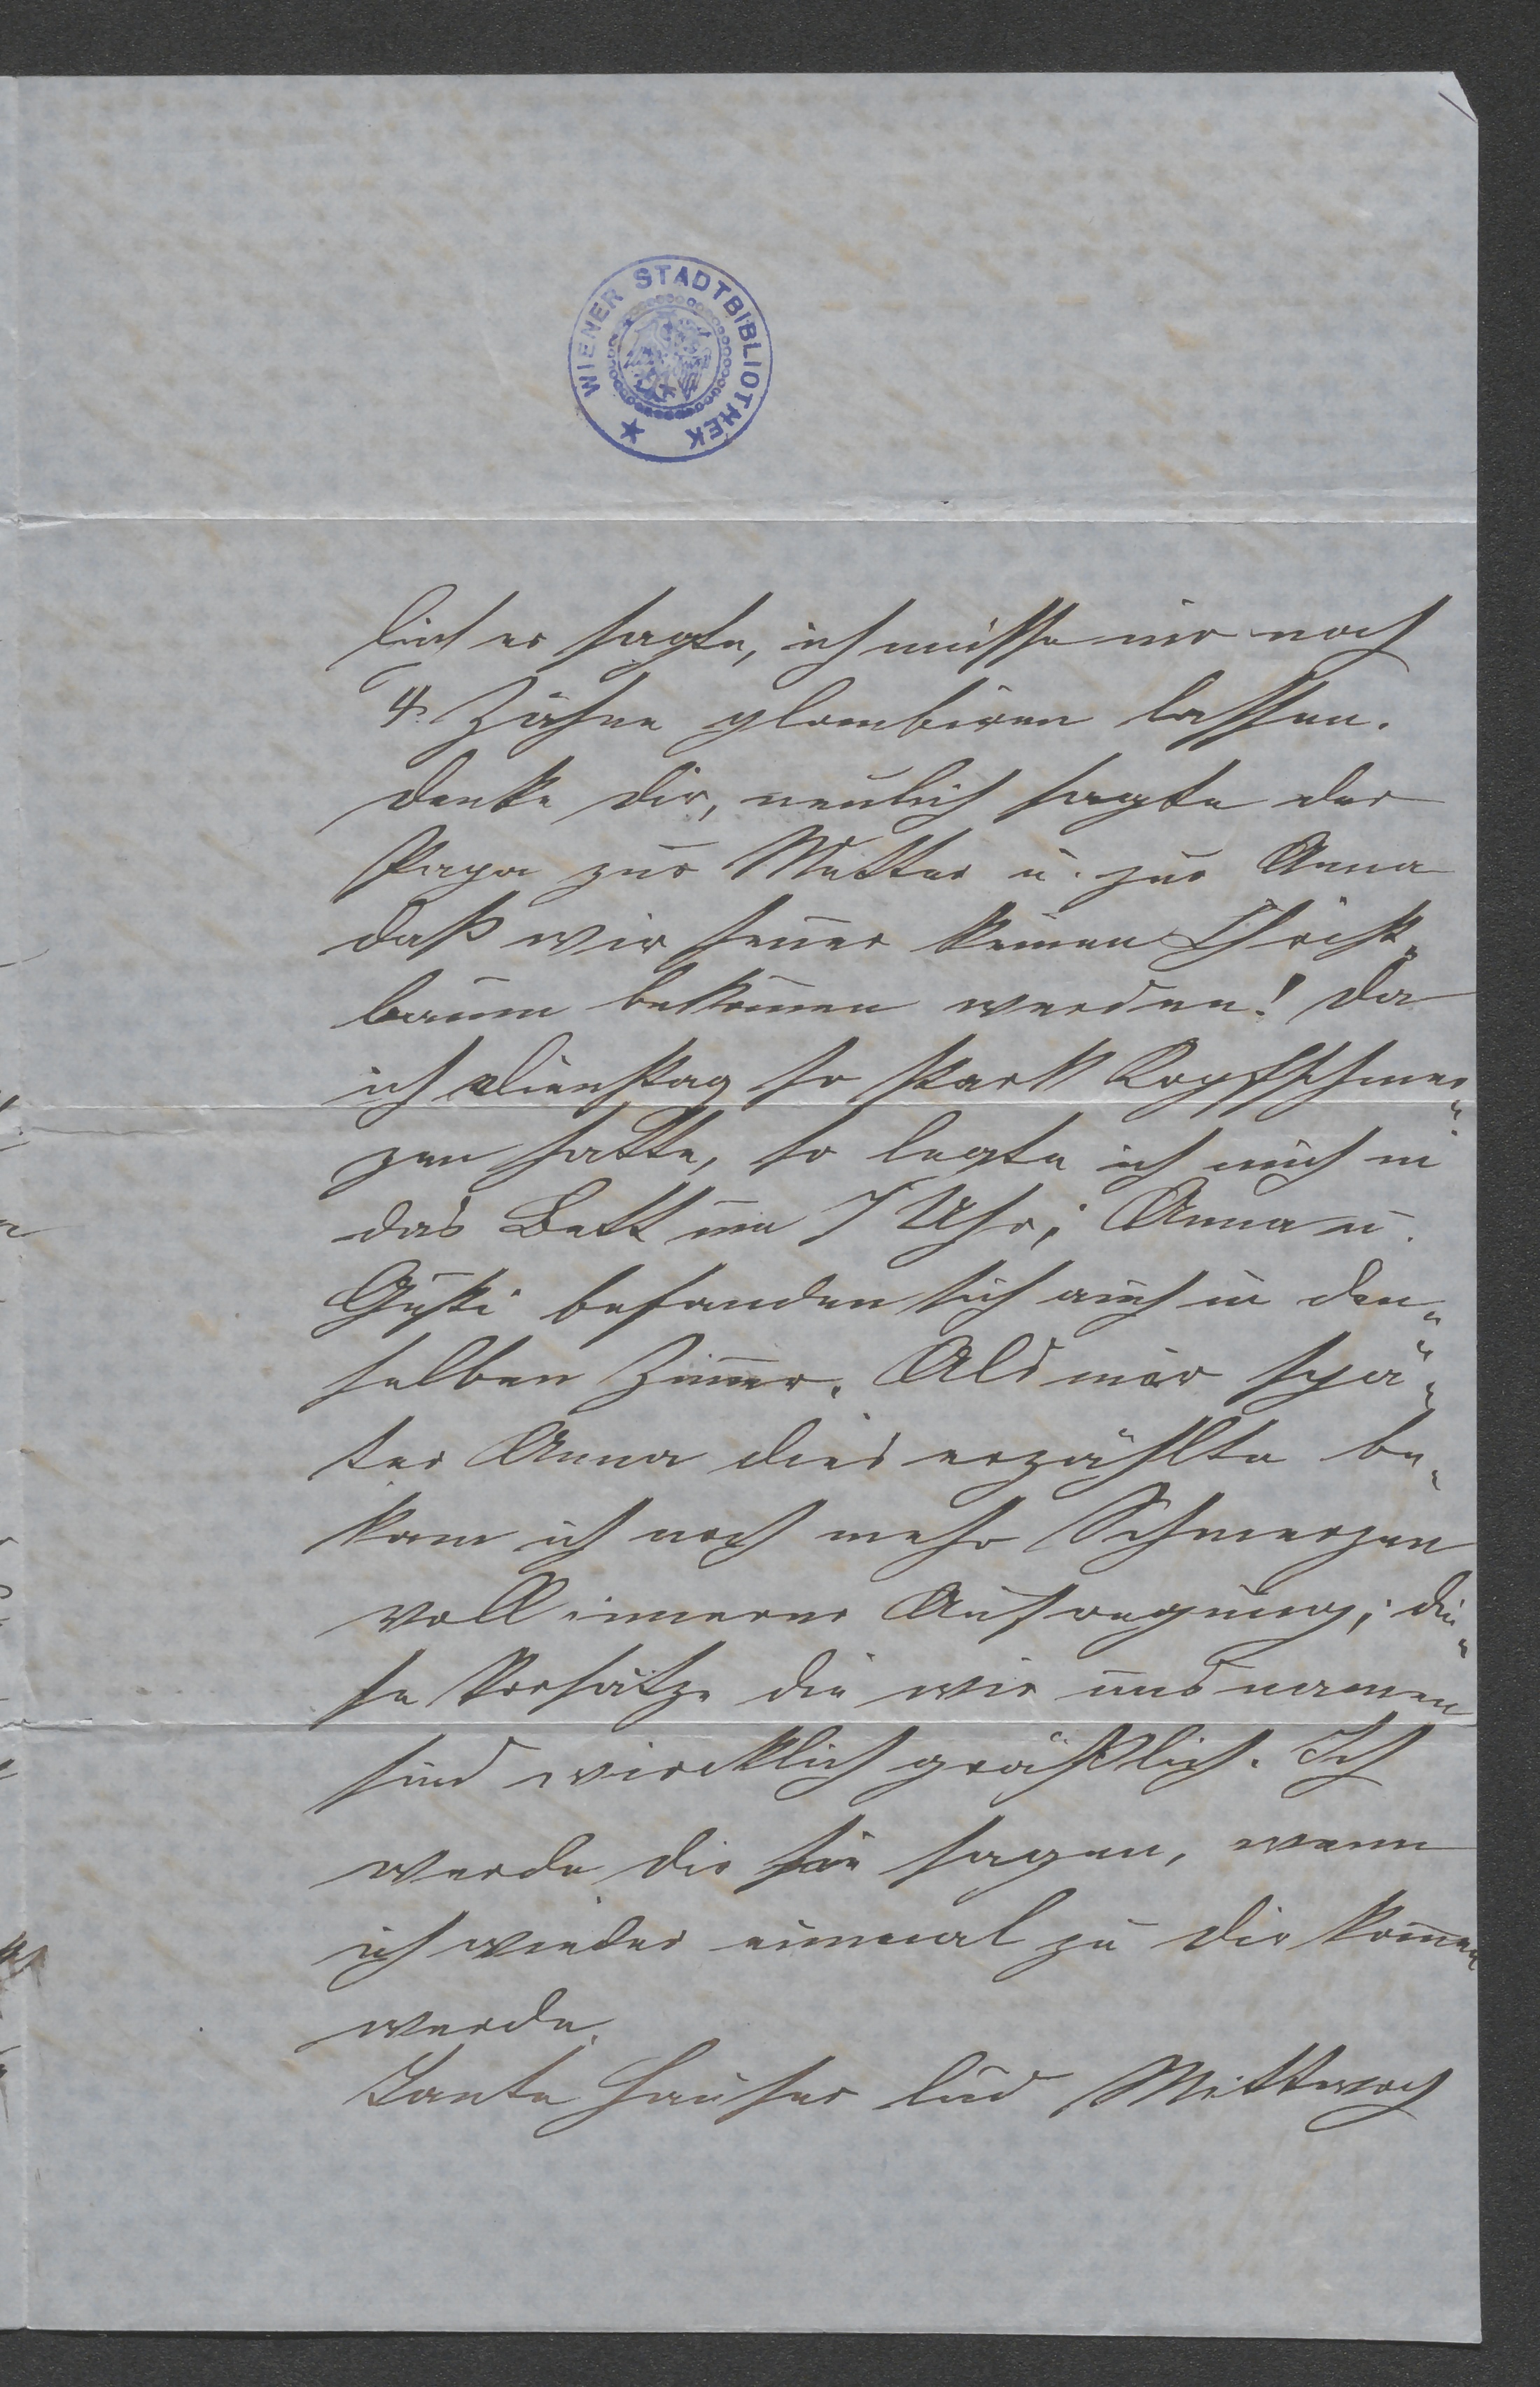 WIENER STADTBIBLIOTHEK
lich er sagte, ich müsse mir noch
4 Zähne plombiren lassen.
Denke dir, neulich sagte der
Papa zur Mutter u. zur Anna
daß wir heuer keinen Christ„
baum bekom̄en werden! Da
ich Dienstag so stark Kopfschmer„
zen hatte, so legte ich mich in
das Bett um 7 Uhr; Anna u.
Gusti befanden sich auch in den„
selben Zim̄er. Als mir spä„
ter Anna dies erzählte be„
kam ich noch mehr Schmerzen
voll innerer Aufregung; die„
se Vorsätze die wir uns namen
sind wircklich gräßlich. Ich
werde dir sie sagen, wenn
ich wieder einmal zu dir kom̄en
werde.
Tante Hauser lud Mittwoch